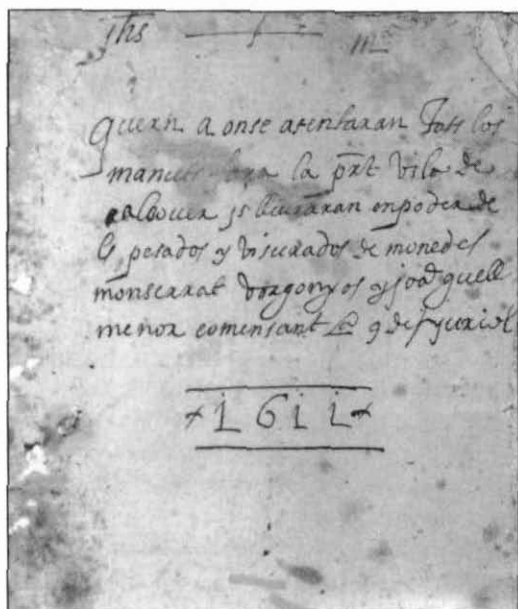 Jhs m
quern a onse asentaran tots los
manuts fora la pnt vila de
valbouer is lliuraran en poder de
ls pesados y visurados de monedes
monserrat borgonyos y joan guell
menor comensant a 9 de
1611